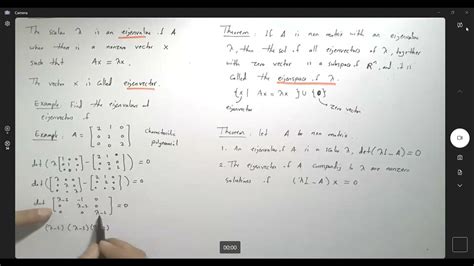 Camera
The scalar λ is an eigenvalue of A
when there is a nonzero vector x
such that Ax = λx.
The vector x is called eigenvector.
Example: Find the eigenvalues and
eigenvectors of
Example. A =
characteristic
polynomial
det ( ) = 0
det ( ) = 0
det = 0
Theorem: If A is nxn matrix with an eigenvalue
λ, then the set of all eigenvectors of λ, together
with zero vector is a subspace of Rⁿ, and it is
called the eigenspace of λ.
{ | Ax = λx } ∪ {0}
eigenvector
zero vector
Theorem. let A be nxn matrix.
1. An eigenvalue of A is a scalar λ, det(λI-A)=0
2. The eigenvectors of A corresponding to λ are nonzero
solutions of (λI-A)x=0
00:00